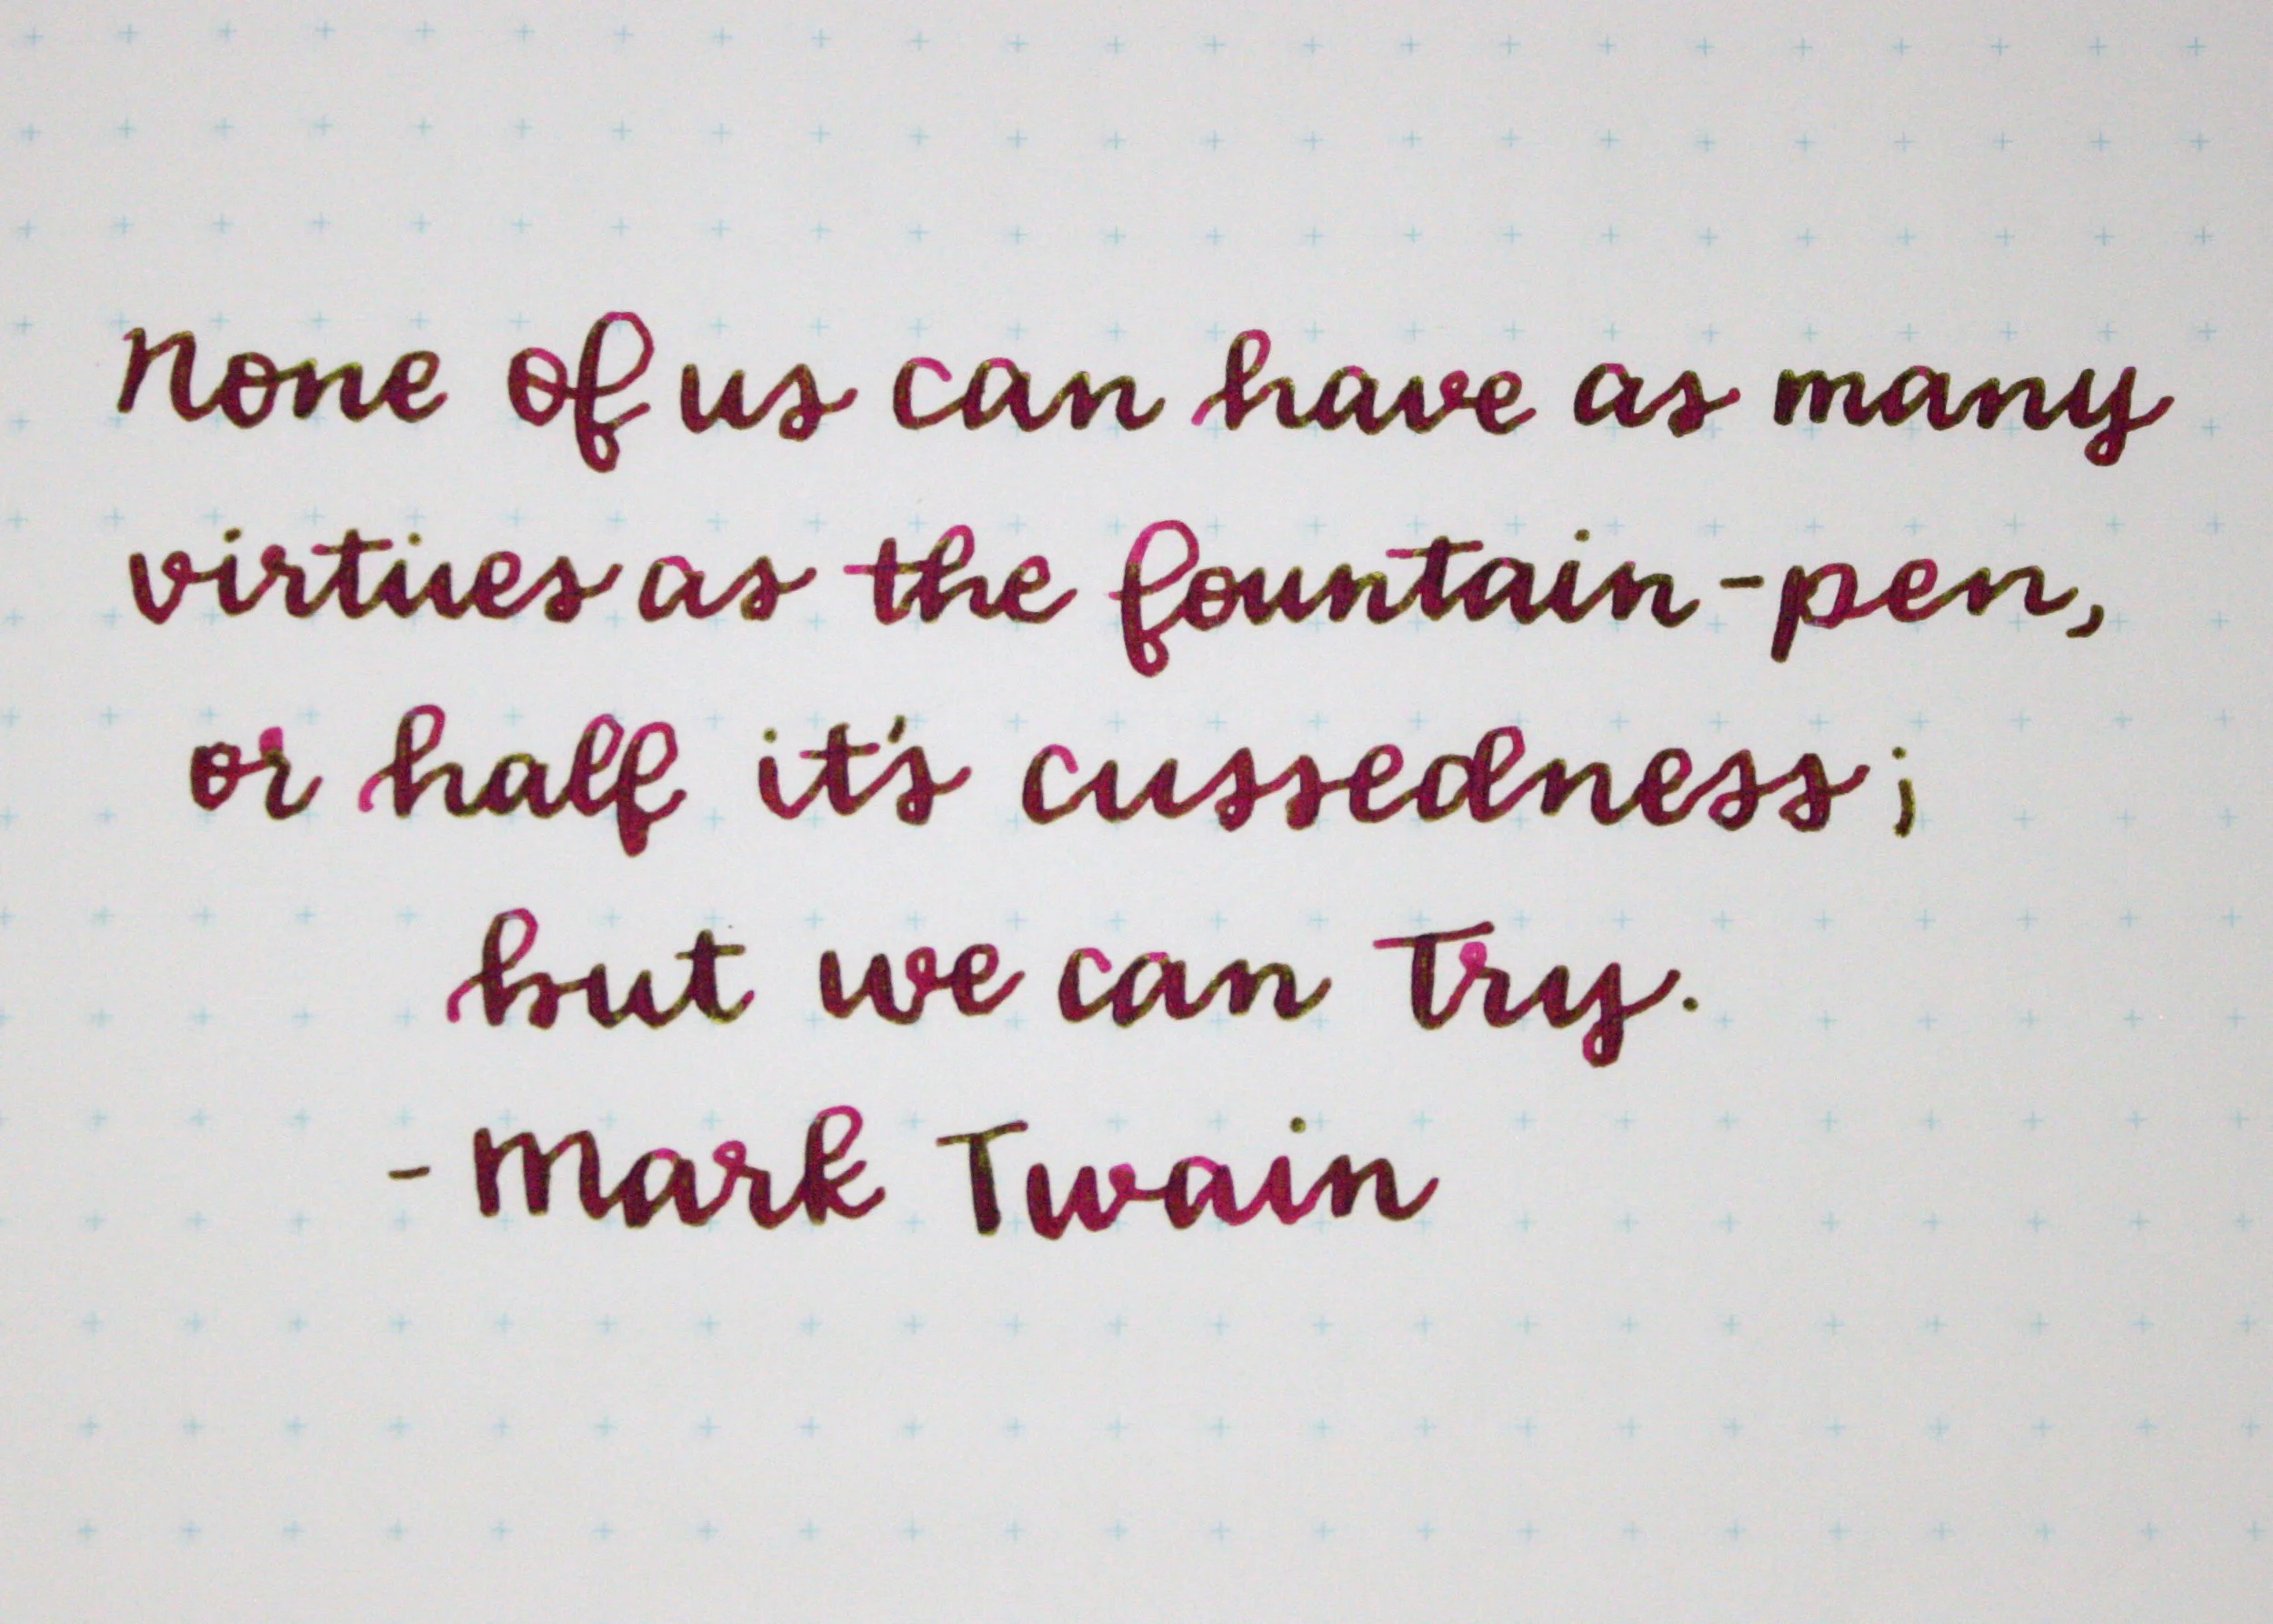 None of us can have as many
virtues as the fountain-pen,
or half it's cussedness;
but we can try.
- Mark Twain